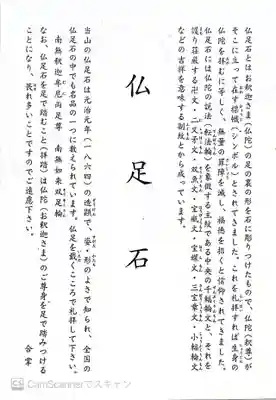 仏足石
仏足石とはお釈迦さま(仏陀)の足の裏の形を石に彫りつけたもので、仏陀(釈尊)が
そこに立って在す標幟(シンボル)とされてきました。これを礼拝すれば生身の
仏陀を拝むに等しく、無量の罪障を滅し、福徳を招くと信仰されてきました。
仏足石には仏陀の説法(転法輪)を象徴する主紋である中央の千輻輪文と、それを
護り荘厳する卍文・二又才文・双魚文・宝瓶文・宝螺文・三宝章文・小輻輪文
などの吉祥を意味する副紋とから成っています。
当山の仏足石は元治元年(一八六四)の造顕で、姿・形のよさで知られ、全国の
仏足石の中でも名品の一つに数えられています。仏足を戴くこころで礼拝して下さい。
南無釈迦牟尼尚足尊 南無如来妙足輪
なお、仏足石を足で踏むこと(拝踏)は仏陀(お釈迦さま)のご尊身を足で踏みつける
ことになり、畏れ多いことですのでご遠慮下さい。
合掌
CS CamScannerでスキャン